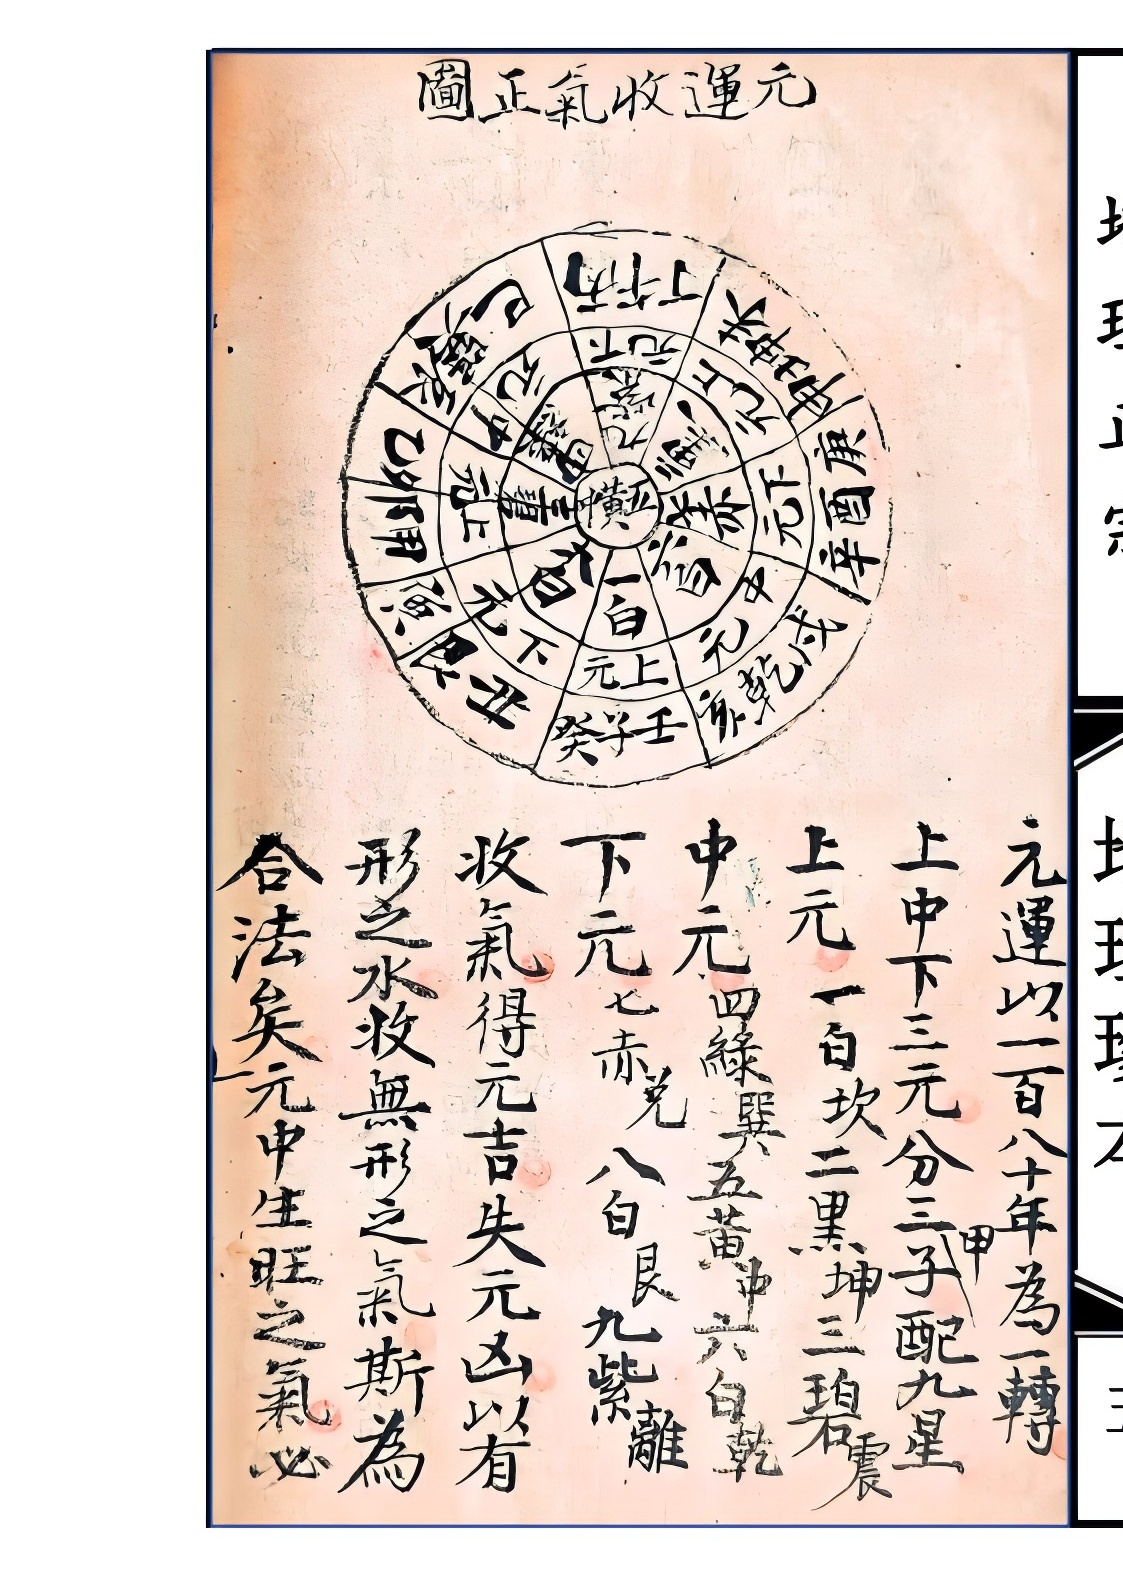 元運收氣正圖
丁午丙
未坤申
庚酉辛
戌乾亥
壬子癸
丑艮寅
甲卯乙
辰巽巳
下元
上元
下元
中元
上元
下元
上元
中元
九紫
二黑
七赤
六白
一白
八白
三碧
四綠
五黃
元運以一百八十年為一轉
上中下三元分三甲子配九星
上元一白坎二黑坤三碧震
中元四綠巽五黃中六白乾
下元七赤兌八白艮九紫離
收氣得元吉失元凶以有
形之水收無形之氣斯為
合法矣元中生旺之氣必